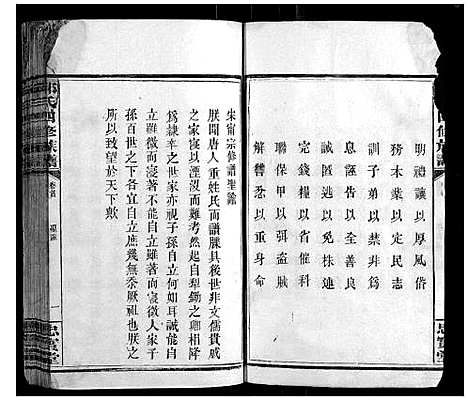 明禮讓以厚風俗
務本業以定民志
訓子弟以禁非為
息誣告以全善良
誡匿逃以免株連
完錢糧以省催科
聯保甲以弭盜賊
解讐忿以重身命
宋甯宗修譜聖諭
朕聞唐人重姓氏而譜牒具後世非文儒貴戚
之家寖以湮沒而難考然起自犁鋤之卿相降
為隸辛之世家亦視子孫自立何如耳誠能自
立雖微而寖著不能自立雖著而寖微人家子
孫百世之下宜各自立庶幾無忝厥祖也朕之
所以致望於天下歟
氏四修族譜
卷首
思實堂